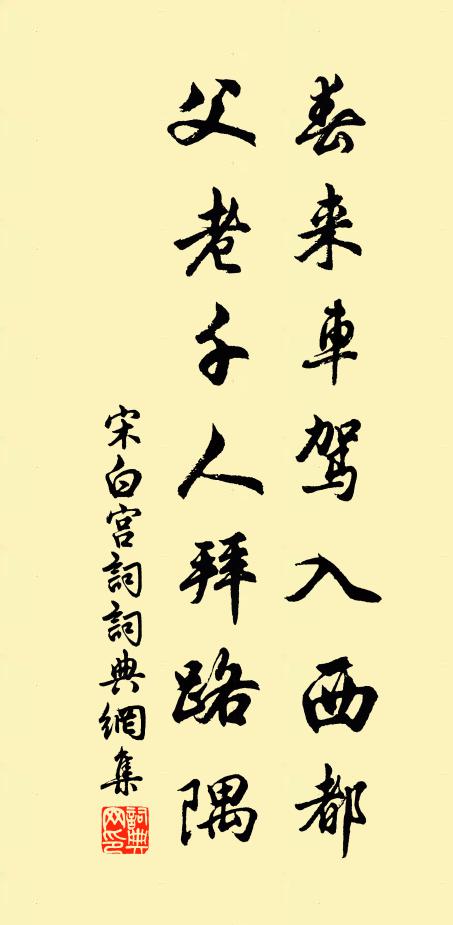 春来車駕入西都
父老千人拜路隅
宋白宫詞詞典網集
詞典网印